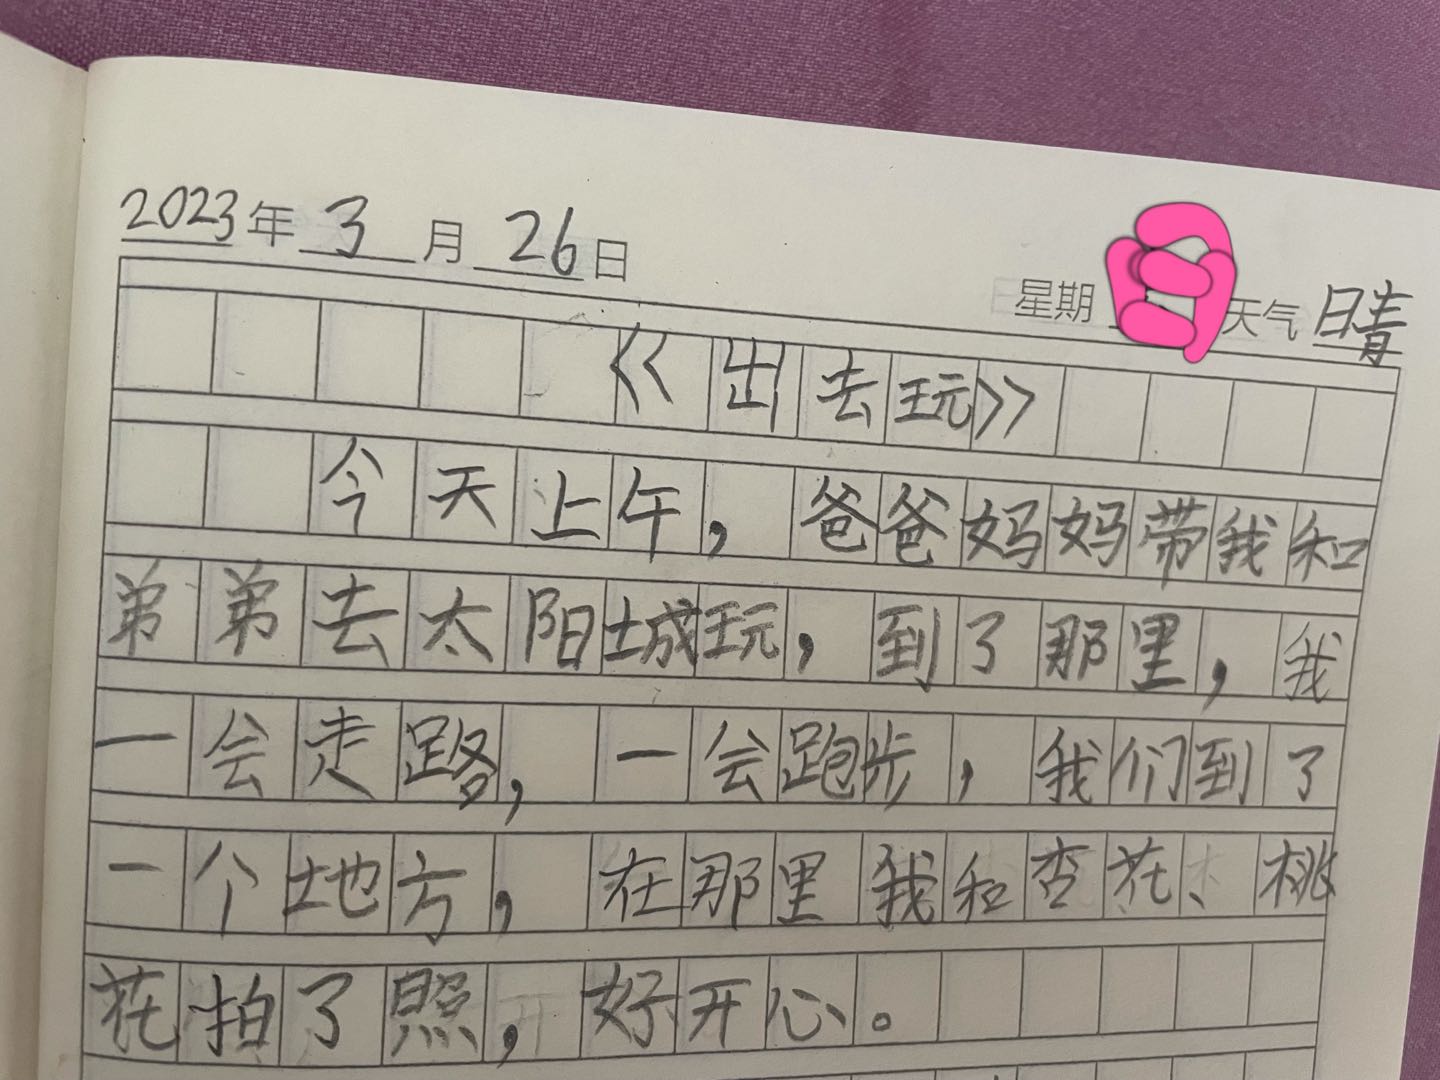 2023年3月26日 星期 天气晴
《出去玩》
今天上午，爸爸妈妈带我和
弟弟去太阳城玩，到了那里，我
一会走路，一会跑步，我们到了
一个地方，在那里我和杏花、桃
花拍了照，好开心。